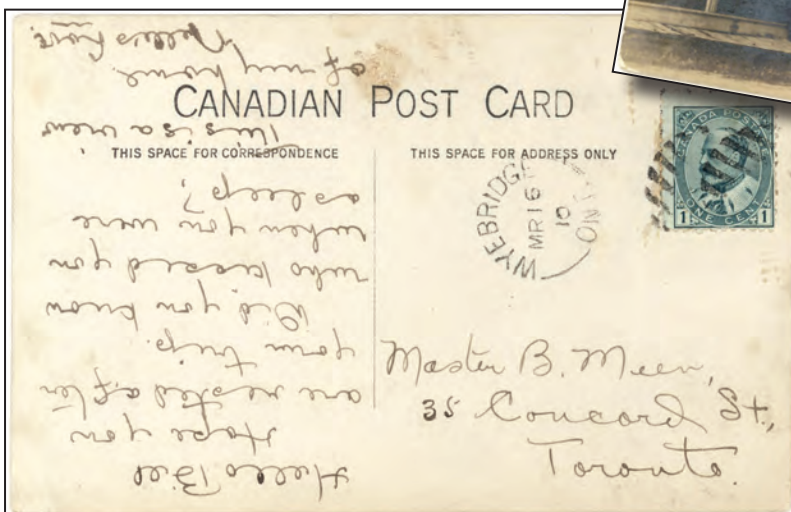 CANADIAN POST CARD
THIS SPACE FOR CORRESPONDENCE
THIS SPACE FOR ADDRESS ONLY
WYEBRIDGE
MR 16
10
ONT
CANADA POSTAGE
1 ONE CENT 1
Master B. Meen,
35 Concord St.,
Toronto.
Hello Bill
Hope you
are rested after
your trip.
Did you know
who kissed you
when you were
asleep?
This is a view
of my home.